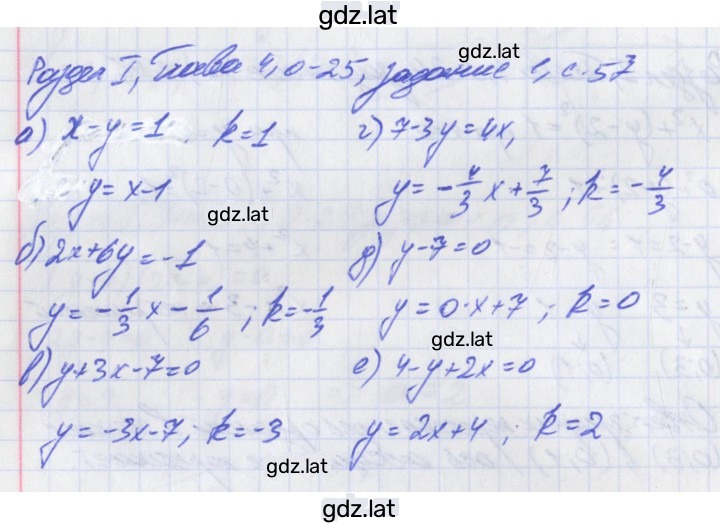 gdz.lat
Раздел I, Глава 4, О-25, задание 1, с. 57
gdz.lat
а) x-y=1 k=1
y=x-1
gdz.lat
б) 2x+6y=-1
y=-1/3 x-1/6; k=-1/3
в) y+3x-7=0
y=-3x-7; k=-3
gdz.lat
г) 7-3y=4x,
gdz.lat
y=-4/3 x+7/3; k=-4/3
д) y-7=0
y=0·x+7; k=0
gdz.lat
е) 4-y+2x=0
y=2x+4; k=2
gdz.lat